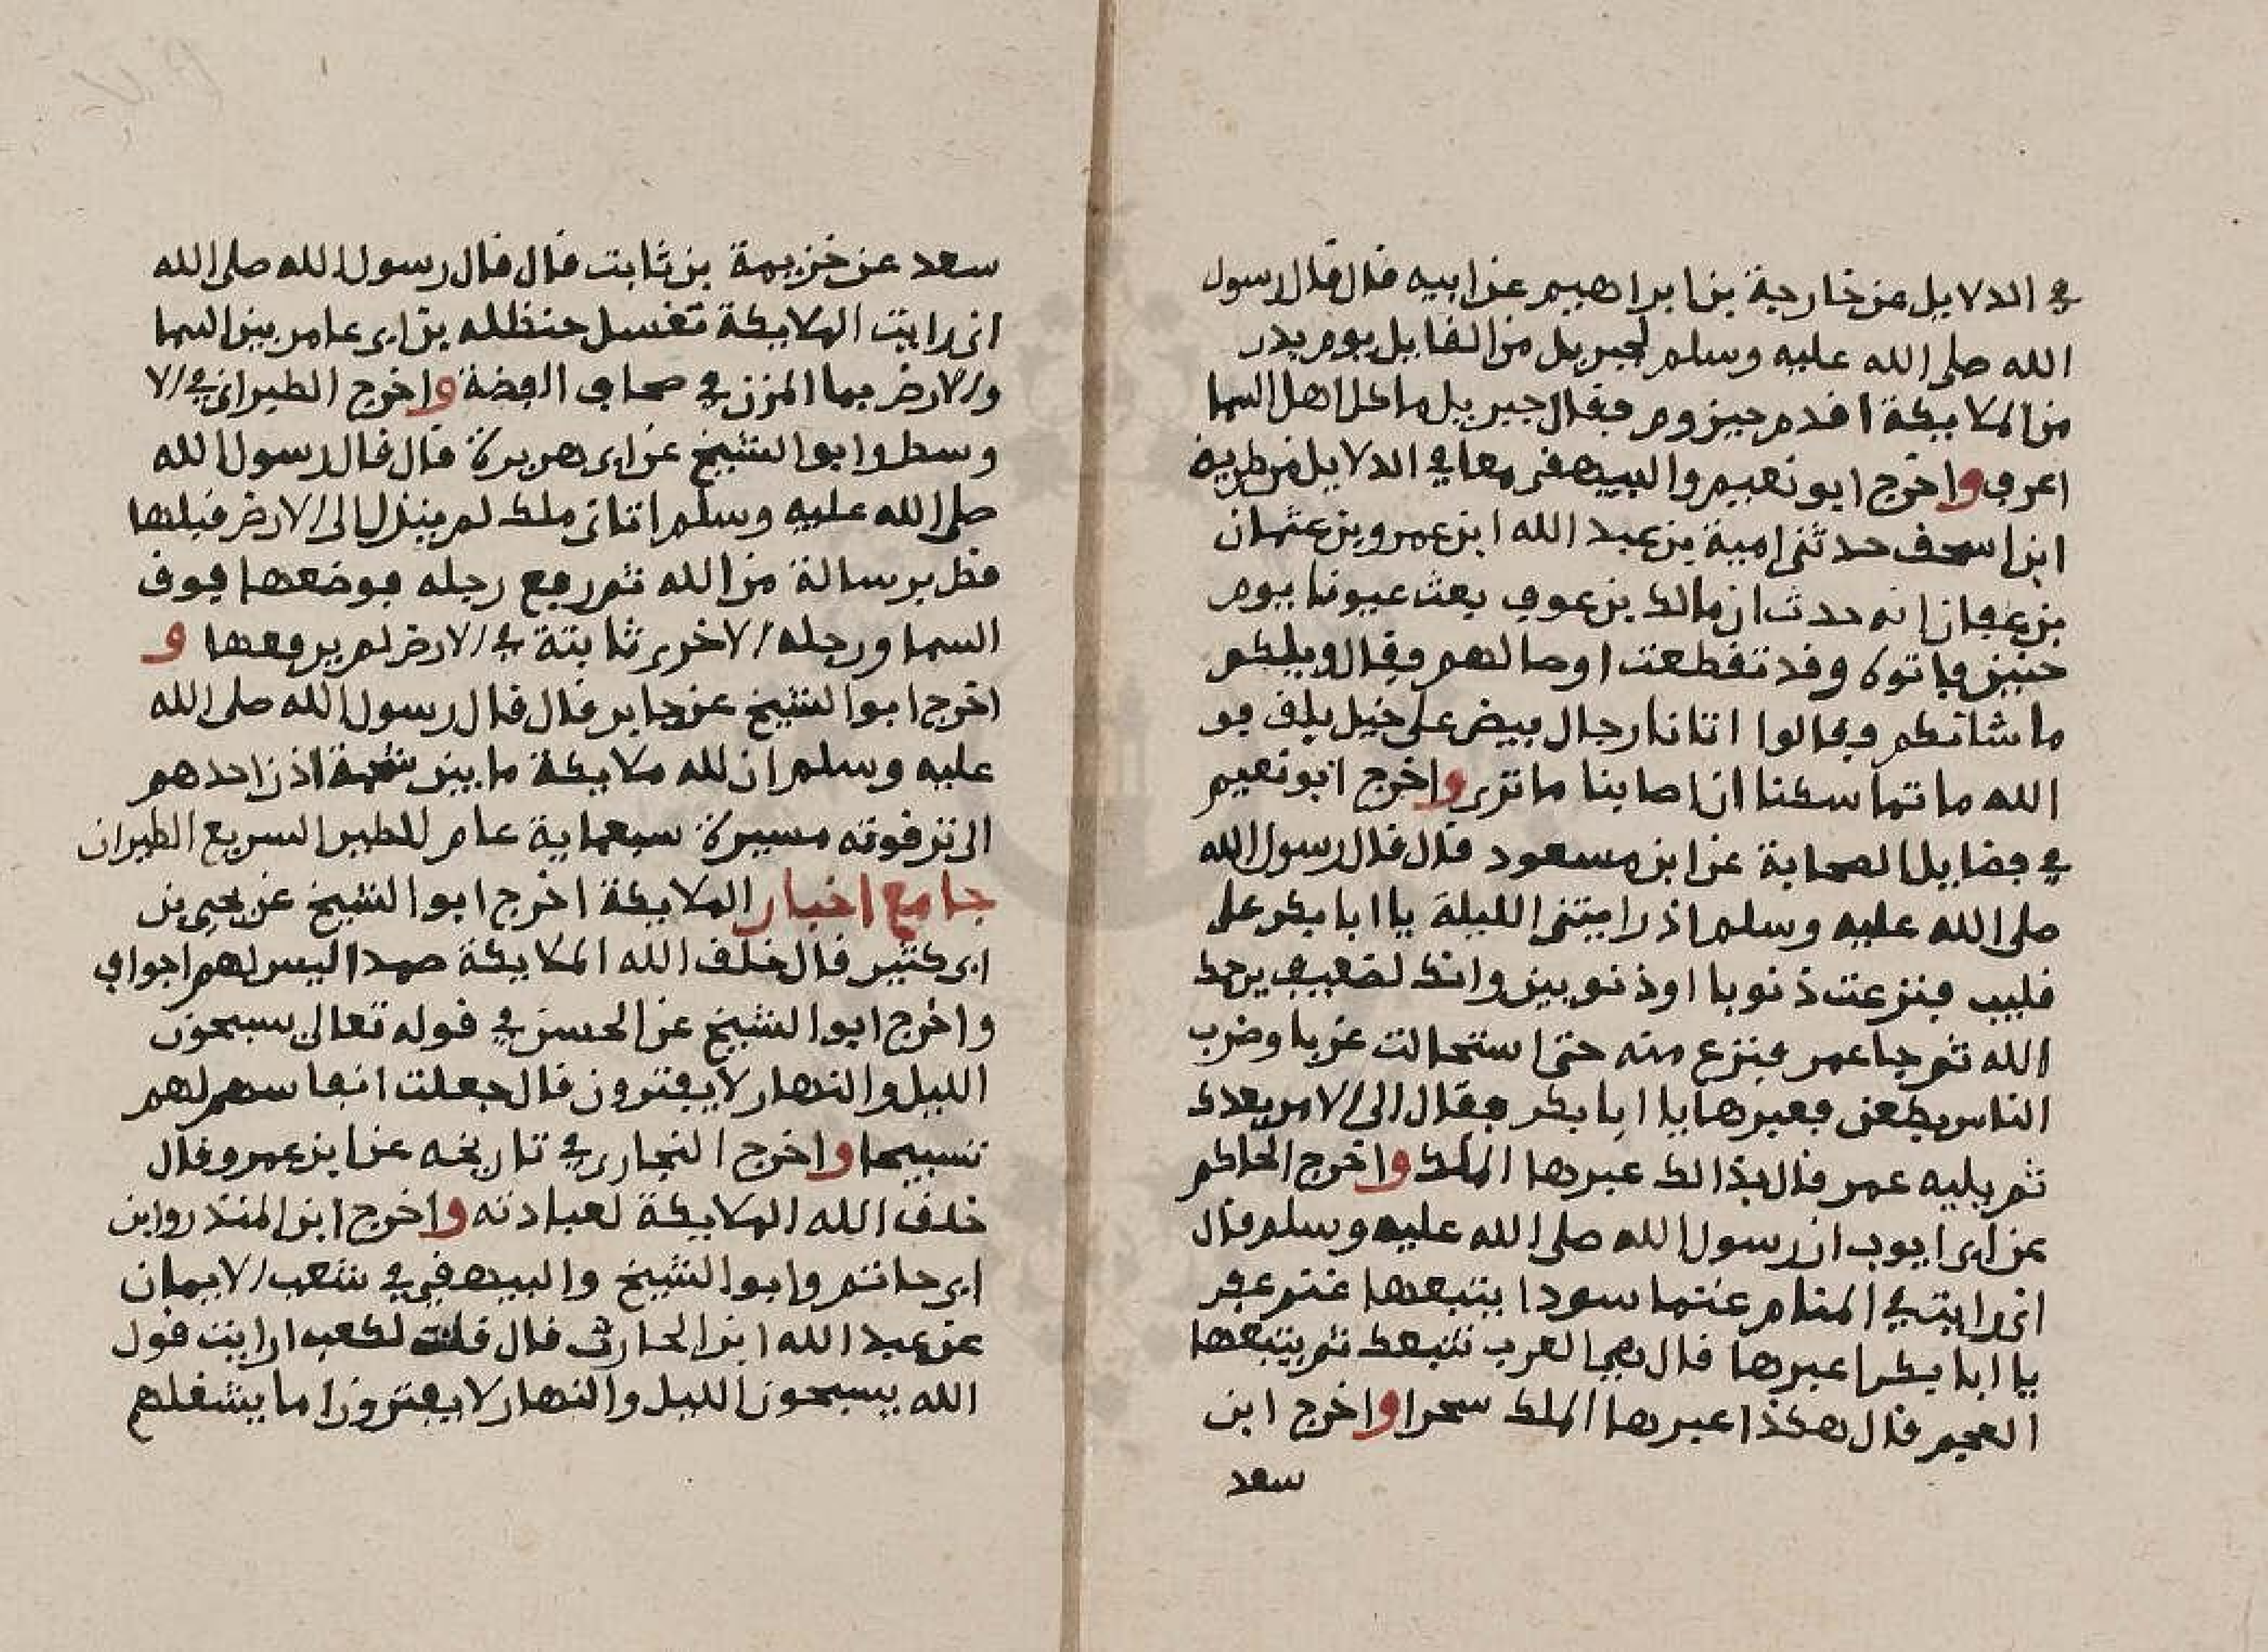 في الدلايل عن خارجة بن ابراهيم عن ابيه قال قال رسول
الله صلى الله عليه وسلم لجبريل من القايل يوم بدر
من الملايكة اقدم حيزوم فقال جبريل ما كل اهل السما
اعرف واخرج ابو نعيم والبيهقي معا في الدلايل من طريق
ابن اسحق حدثني امية بن عبد الله ابن عمرو بن عثمان
بن عفان انه حدث ان مالك بن عوف بعث عيونا يوم
حنين فاتوه وقد تقطعت اوصالهم فقال ويلكم
ما شانكم فقالوا اتانا رجال بيض على خيل بلق فو
الله ما تماسكنا ان اصابنا ما ترى واخرج ابو نعيم
في فضايل الصحابة عن ابن مسعود قال قال رسول الله
صلى الله عليه وسلم اذ رايتني الليلة يا ابا بكر على
قليب فنزعت ذنوبا او ذنوبين وانك لضعيف يرحمك
الله ثم جا عمر فنزع منه حتى استحالت غربا وضرب
الناس بطعن فعبرها يا ابا بكر فقال الي الامر بعدك
ثم يليه عمر قال بذالك عبرها الملك واخرج الحاكم
عن ابي ايوب ان رسول الله صلى الله عليه وسلم قال
اني رايت في المنام غنما سودا يتبعها غنم عفر
يا ابا بكر اعبرها قال هي العرب تتبعك ثم يتبعها
العجم قال هكذا عبرها الملك سحرا واخرج ابن
سعد
سعد عن خزيمة بن ثابت قال قال رسول الله صلى الله
اني رايت الملايكة تغسل حنظله بن ابي عامر بين السما
والارض بما المزن في صحاف الفضة واخرج الطبراني في الا
وسط وابو الشيخ عن ابي هريرة قال قال رسول الله
صلى الله عليه وسلم اتاني ملك لم ينزل الى الارض قبلها
قط برسالة من الله ثم رفع رجله فوضعها فوق
السما ورجله الاخرى ثابتة في الارض لم يرفعها و
اخرج ابو الشيخ عن جابر قال قال رسول الله صلى الله
عليه وسلم ان لله ملايكة ما بين شحمة اذن احدهم
الى ترقوته مسيرة سبعماية عام للطير السريع الطيران
جامع اخبار الملايكة اخرج ابو الشيخ عن يحيى بن
ابي كثير قال خلق الله الملايكة صمدا ليس لهم اجواف
واخرج ابو الشيخ عن الحسن في قوله تعالى يسبحون
الليل والنهار لا يفترون قال جعلت انفاسهم لهم
تسبيحا واخرج البخاري في تاريخه عن ابن عمرو قال
خلق الله الملايكة لعبادته واخرج ابن المنذر وابن
ابي حاتم وابو الشيخ والبيهقي في شعب الايمان
عن عبد الله ابن الحارث قال قلت لكعب ارايت قول
الله يسبحون الليل والنهار لا يفترون اما يشغلهم